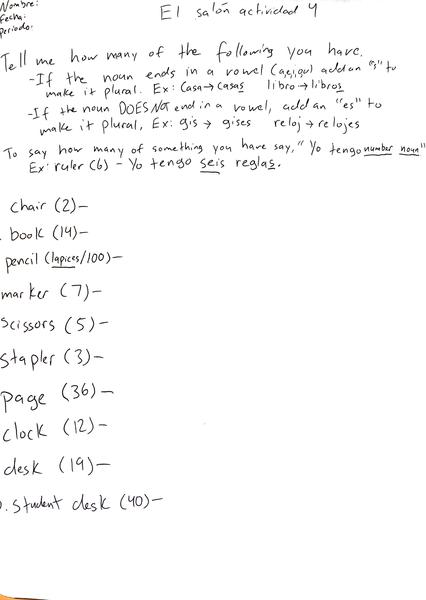 Nombre:
El salón actividad 4
fecha:
periodo:
Tell me how many of the following you have.
-If the noun ends in a vowel (a,e,i,o,u) add an "s" to
make it plural. Ex: Casa → casas libro → libros
-If the noun DOES NOT end in a vowel, add an "es" to
make it plural, Ex: gis → gises reloj → relojes
To say how many of something you have say, "Yo tengo number noun"
Ex: ruler (6) - Yo tengo seis reglas.
chair (2)-
. book (14)-
pencil (lapices/100)-
marker (7)-
Scissors (5)-
Stapler (3)-
page (36)-
clock (12)-
desk (19)-
. Student desk (40)-